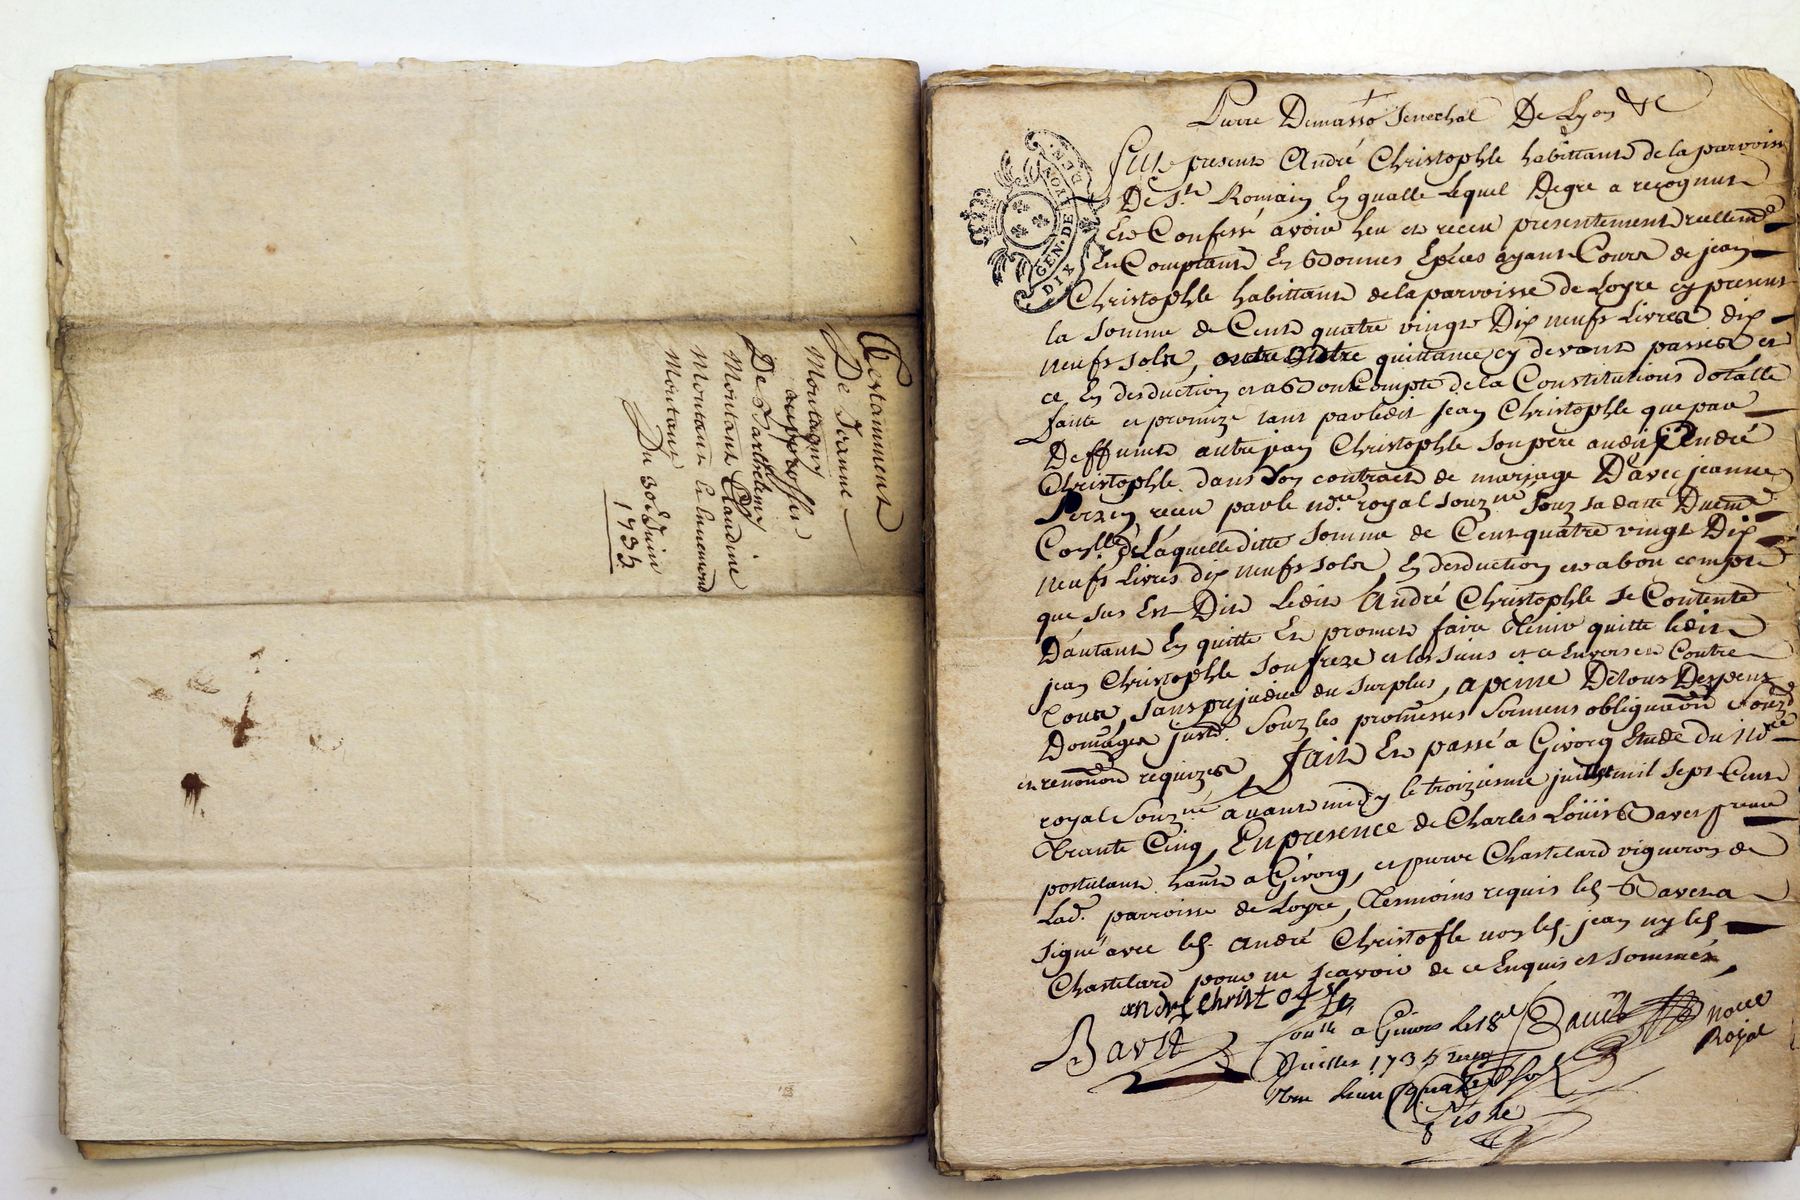 Testamment
De Jeanne
Montagny
au proffit
De Barthelemy
Montant Claudine
Montant et Enemond
Montant
Du 30e Juin
1735
Pierre Demasso Senechal De Lyon &c
Fut present André Christophle habittant de la parroisse
De St Romain En qualle Lequel Degre a recognut
Et Confessé avoir heu et receu presentement reellemt
En Comptant En Bonnes Epéces ayant Cours de jean
Christophle habittant de la parroisse de Loyre cy present
la somme de Cent quatre vingt Dix neufs Livres dix
neufs sols, outre autre quittance cy devant passée et
ce En desduction et a Bon Compte de la Constitutions dotalle
faitte et promize tant par ledit jean Christophle que par
Deffunt autre jean Christophle son pere audit André
Christophle dans son contract de mariage D'avec jeanne
receu par le nore royal souzné souz sa datte Duemt
Conllé, de Laquelle ditte somme de Cent quatre vingt Dix
neufs Livres dix neufs sols, En desduction et a bon compte
que sus Est Dit Ledit André Christophle se Contente
D'autant En quitte Et promet faire tenir quitte ledit
jean Christophle son freze et les siens et ce Envers et Contre
tous, sans prejudice du surplus, a peine De tous Despens
Domages souz les promesses sermens obligaon
et renonon requizes, Fait Et passé a Givors Etude du nore
royal souzné avant midy le troizieme juillet mil sept Cent
trante Cinq, En presence de Charles Loüis Bavet
postulant hant a Givors, et pierre Chastelard vigneron de
Lad. parroisse de Loyre, temoins requis led. Bavet a
signé avec led. André Christofle non led. jean ny led.
Chastelard pour ne scavoir de ce Enquis et sommés,
andre christofle
Bavet
Conllé a Givors Le 18e
Juillet 1735
nore
Royal
GEN. DE LYON
DIX DEN.